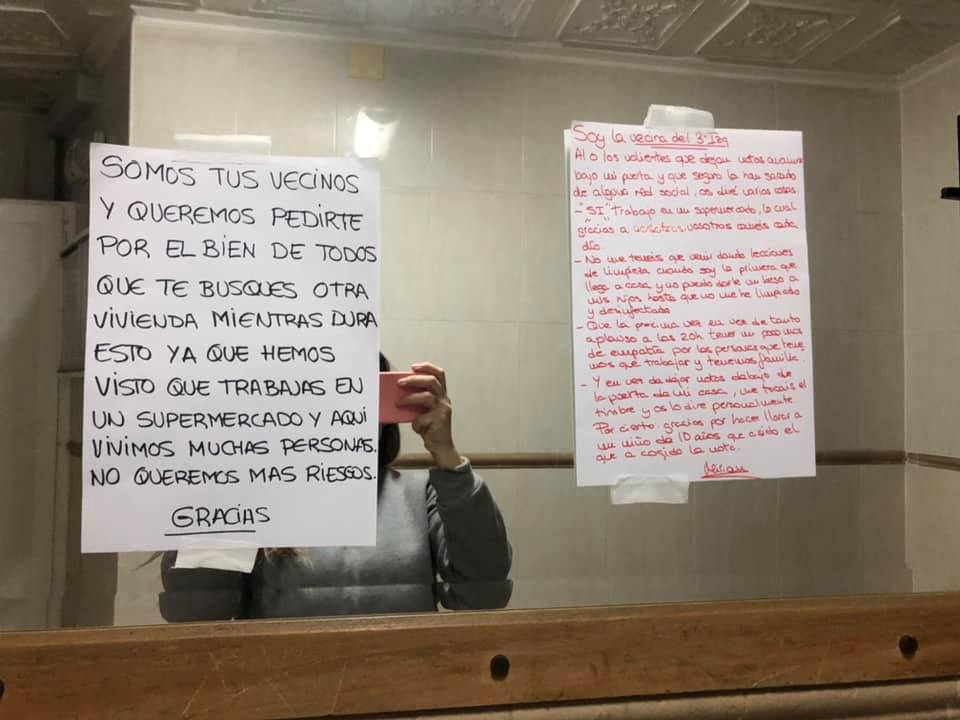 SOMOS TUS VECINOS
Y QUEREMOS PEDIRTE
POR EL BIEN DE TODOS
QUE TE BUSQUES OTRA
VIVIENDA MIENTRAS DURA
ESTO YA QUE HEMOS
VISTO QUE TRABAJAS EN
UN SUPERMERCADO Y AQUI
VIVIMOS MUCHAS PERSONAS.
NO QUEREMOS MAS RIESGOS.
GRACIAS
Soy la vecina del 3º Izq
Al o los valientes que dejan notas
bajo mi puerta y que seguro la han sacado
de alguna red social, os diré varias cosas:
- "SI" Trabajo en un supermercado, lo cual
gracias a nosotros vosotros comeis cada
día.
- No me teneis que venir dando lecciones
de limpieza cuando soy la primera que
llega a casa y no puedo darle un beso a
mis hijos hasta que no me he limpiado
y desinfectado
- Que la procima vez en vez de tanto
aplauso a las 20h tener un poco mas
de empatia por las personas que tene
mos que trabajar y tenemos familia.
- Y en vez de dejar notas debajo de
la puerta de mi casa, me tocais el
timbre y os lo dire personalmente.
Por cierto: gracias por hacer llorar a
un niño de 10 años que a sido el
que a cogido la nota.
Miriam